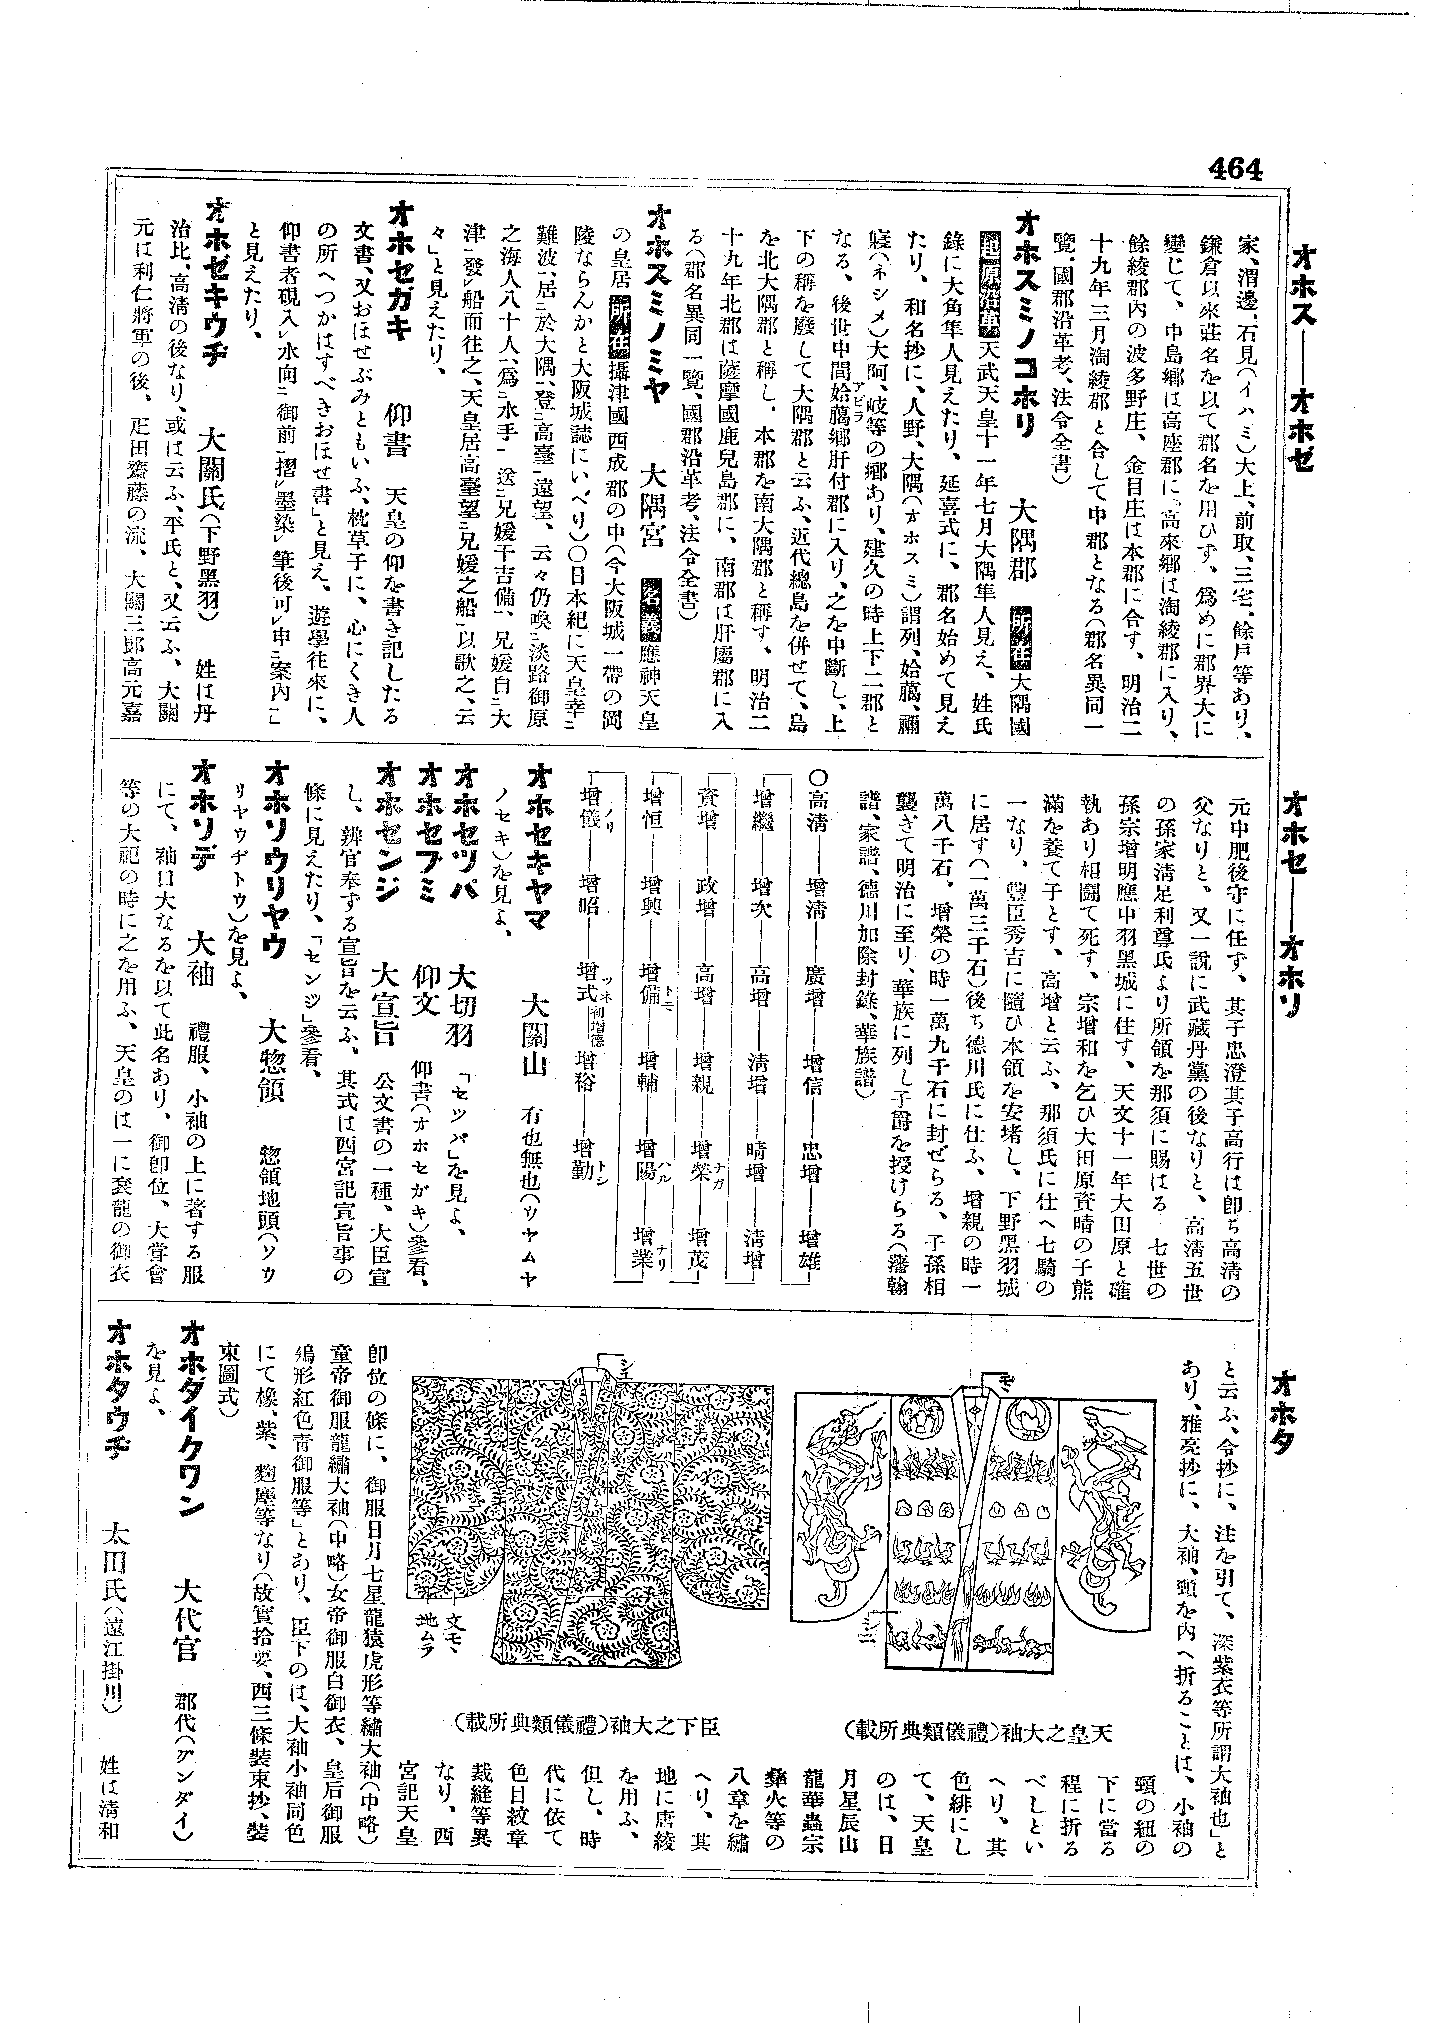 464
オホス――オホゼ
オホセ――オホリ
オホタ
家、渭邊、石見(イハミ)大上、前取、三宅、餘戶等あり、
鎌倉以來莊名を以て郡名を用ひず、爲めに郡界大に
變じて、中島鄕は高座郡に、高來鄕は淘綾郡に入り、
餘綾郡內の波多野庄、金目庄は本郡に合す、明治二
十九年三月淘綾郡と合して中郡となる(郡名異同一
覽、國郡沿革考、法令全書)
オホスミノコホリ 大隅郡 所在 大隅國
起原沿革 天武天皇十一年七月大隅隼人見え、姓氏
錄に大角隼人見えたり、延喜式に、郡名始めて見え
たり、和名抄に、人野、大隅(オホスミ)謂列、姶臈、禰
寢(ネシメ)大阿、岐等の鄕あり、建久の時上下二郡と
なる、後世中間姶臈鄕肝付郡に入り、之を中斷し、上
アヒラ
下の稱を廢して大隅郡と云ふ、近代總島を併せて、島
を北大隅郡と稱し、本郡を南大隅郡と稱す、明治二
十九年北郡は薩摩國鹿兒島郡に、南郡は肝屬郡に入
る(郡名異同一覽、國郡沿革考、法令全書)
オホスミノミヤ 大隅宮 名義 應神天皇
の皇居 所在 攝津國西成郡の中(今大阪城一帶の岡
陵ならんかと大阪城誌にいべり)〇日本紀に天皇幸ニ
難波一、居ニ於大隅一、登ニ高臺一遠望、云々仍喚ニ淡路御原
之海人八十人一、爲ニ水手一、送ニ兄媛于吉備一、兄媛自ニ大
津一發レ船而往之、天皇居高臺望ニ兄媛之船一以歌之、云
々」と見えたり、
オホセガキ 仰書 天皇の仰を書き記したる
文書、又おほせぶみともいふ、枕草子に、心にくき人
の所へつかはすべきおほせ書」と見え、遊學往來に、
仰書者硯入レ水向ニ御前一摺レ墨染レ筆後可レ申ニ案內一こ
と見えたり、
オホゼキウヂ 大關氏(下野黑羽) 姓は丹
治比、高淸の後なり、或は云ふ、平氏と、又云ふ、大關
元は利仁將軍の後、疋田齋藤の流、大關三郎高元嘉
元中肥後守に任ず、其子忠澄其子高行は卽ち高淸の
父なりと、又一說に武藏丹黨の後なりと、高淸五世
の孫家淸足利尊氏より所領を那須に賜はる 七世の
孫宗增明應中羽黑城に住す、天文十一年大田原と確
執あり相鬪て死す、宗增和を乞ひ大田原資晴の子熊
滿を養て子とす、高增と云ふ、那須氏に仕へ七騎の
一なり、豐臣秀吉に隨ひ本領を安堵し、下野黑羽城
に居す(一萬三千石)後ち德川氏に仕ふ、增親の時一
萬八千石、增榮の時一萬九千石に封ぜらる、子孫相
襲ぎて明治に至り、華族に列し子爵を授けらる(藩翰
譜、家譜、德川加除封錄、華族譜)
〇高淸―增淸―廣增―增信―忠增―增雄
增繼―增次―高增―淸增―晴增―淸增
資增―政增―高增―增親―增榮ナガ―增茂
增恒―增興―增備トモ―增輔―增陽ハル―增業ナリ
增儀ノリ―增昭―增式ツネ初增德―增裕―增勤トシ
オホセキヤマ 大關山 有也無也(ウヤムヤ
ノセキ)を見よ、
オホセツパ 大切羽 「セツパ」を見よ、
オホセブミ 仰文 仰書(オホセガキ)參看、
オホセンジ 大宣旨 公文書の一種、大臣宣
し、辨官奉ずる宣旨を云ふ、其式は西宮記宣旨事の
條に見えたり、「センジ」參看、
オホソウリヤウ 大惣領 惣領地頭(ソウ
リヤウヂトウ)を見よ、
オホソデ 大袖 禮服、小袖の上に著する服
にて、袖口大なるを以て此名あり、御卽位、大甞會
等の大祀の時に之を用ふ、天皇のは一に袞龍の御衣
と云ふ、令抄に、注を引て、深紫衣等所謂大袖也」と
あり、雅亮抄に、大袖、頸を內へ折ることは、小袖の
頸の紐の
下に當る
程に折る
べしとい
へり、其
色緋にし
て、天皇
のは、日
月星辰山
龍華蟲宗
彝火等の
八章を繡
へり、其
地に唐綾
を用ふ、
但し、時
代に依て
色目紋章
裁縫等異
なり、西
宮記天皇
天皇之大袖(禮儀類典所載)
臣下之大袖(禮儀類典所載)
文モ、
地ムラ
卽位の條に、御服日月七星龍猿虎形等繡大袖(中略)
童帝御服龍繡大袖(中略)女帝御服白御衣、皇后御服
鵄形紅色靑御服等」とあり、臣下のは、大袖小袖同色
にて橡、紫、麴塵等なり(故實拾要、西三條裝束抄、裝
束圖式)
オホダイクワン 大代官 郡代(グンダイ)
を見よ、
オホタウヂ 太田氏(遠江掛川) 姓は淸和